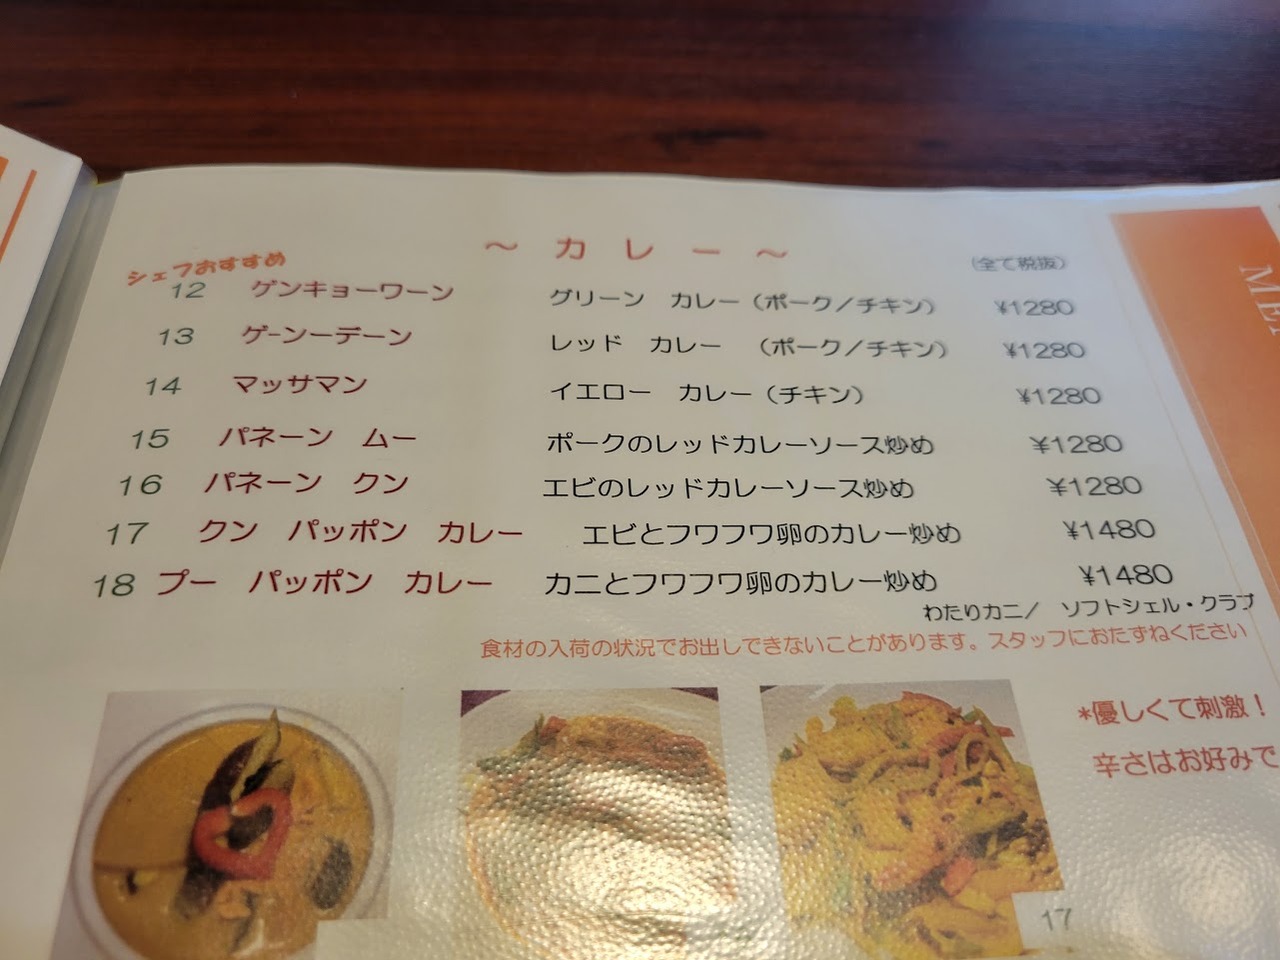 ～ カ レ ー ～
(全て税抜)
シェフおすすめ
12 ゲンキョーワーン グリーン カレー（ポーク／チキン） ¥1280
13 ゲーンーデーン レッド カレー （ポーク／チキン） ¥1280
14 マッサマン イエロー カレー（チキン） ¥1280
15 パネーン ムー ポークのレッドカレーソース炒め ¥1280
16 パネーン クン エビのレッドカレーソース炒め ¥1280
17 クン パッポン カレー エビとフワフワ卵のカレー炒め ¥1480
18 プー パッポン カレー カニとフワフワ卵のカレー炒め ¥1480
わたりカニ／ ソフトシェル・クラブ
食材の入荷の状況でお出しできないことがあります。スタッフにおたずねください
*優しくて刺激！
辛さはお好みで
17